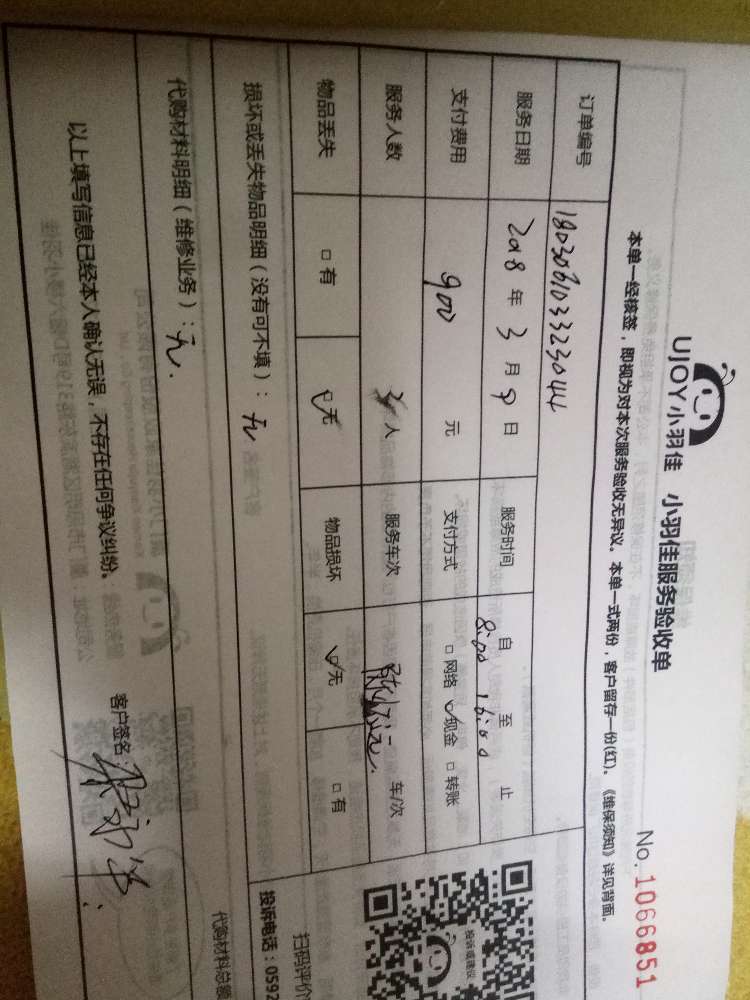 UJOY小羽佳 小羽佳服务验收单 No. 1066851
本单一经核签，即视为对本次服务验收无异议。本单一式两份，客户留存一份(红)。《维保须知》详见背面。
订单编号
服务日期 2018 年 3 月 9 日 服务时间 自 8:00 至 16:00 止
支付费用 900 元 支付方式 □ 网络 □ 现金 □ 转账
服务人数 人 服务车次 车/次
物品丢失 □ 有 □ 无 物品损坏 □ 无 □ 有
损坏或丢失物品明细（没有可不填）：无
代购材料明细（维修业务）：无.
以上填写信息已经本人确认无误，不存在任何争议纠纷。
客户签名
投诉或建议
扫码评价
投诉电话：0592
代购材料总额